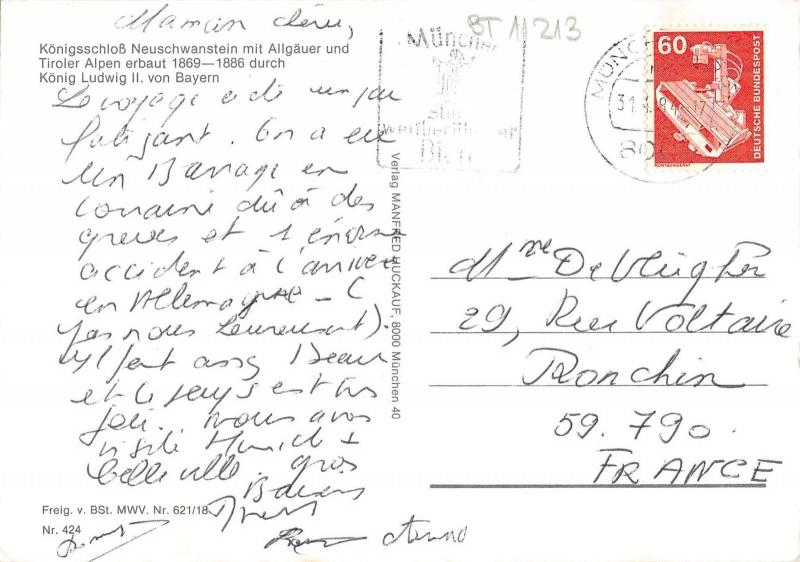 Maman chérie,
BT 11213
Königsschloß Neuschwanstein mit Allgäuer und
Tiroler Alpen erbaut 1869—1886 durch
König Ludwig II. von Bayern
Le voyage a été un peu
fatigant. On a eu
un Barrage en
Lorraine dû à des
greves et 1 énorme
accident à l'arrivée
en Allemagne - (
pas nous heureusement).
Il fait assez Beau
et le pays est très
joli. nous avons
visité Munich 1
belle ville. gros
Baisers
Verlag MANFRED HUCKAUF, 8000 München 40
Freig. v. BSt. MWV. Nr. 621/18
Nr. 424
München
Bier
60
DEUTSCHE BUNDESPOST
RÖNTGENGERÄT
MÜNCHEN
Mme De Vlieghe
29, Rue Voltaire
Ronchin
59.790.
FRANCE